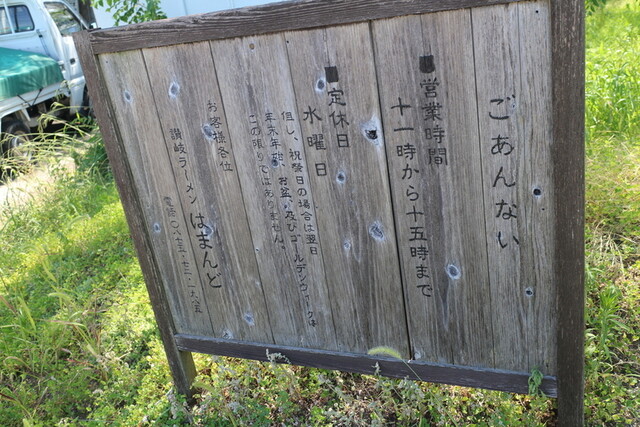 ごあんない
■営業時間
十一時から十五時まで
■定休日
水曜日
但し、祝祭日の場合は翌日
年末年始、お盆、及びゴールデンウィークは
この限りではありません。
お客様各位
讃岐ラーメン はまんど